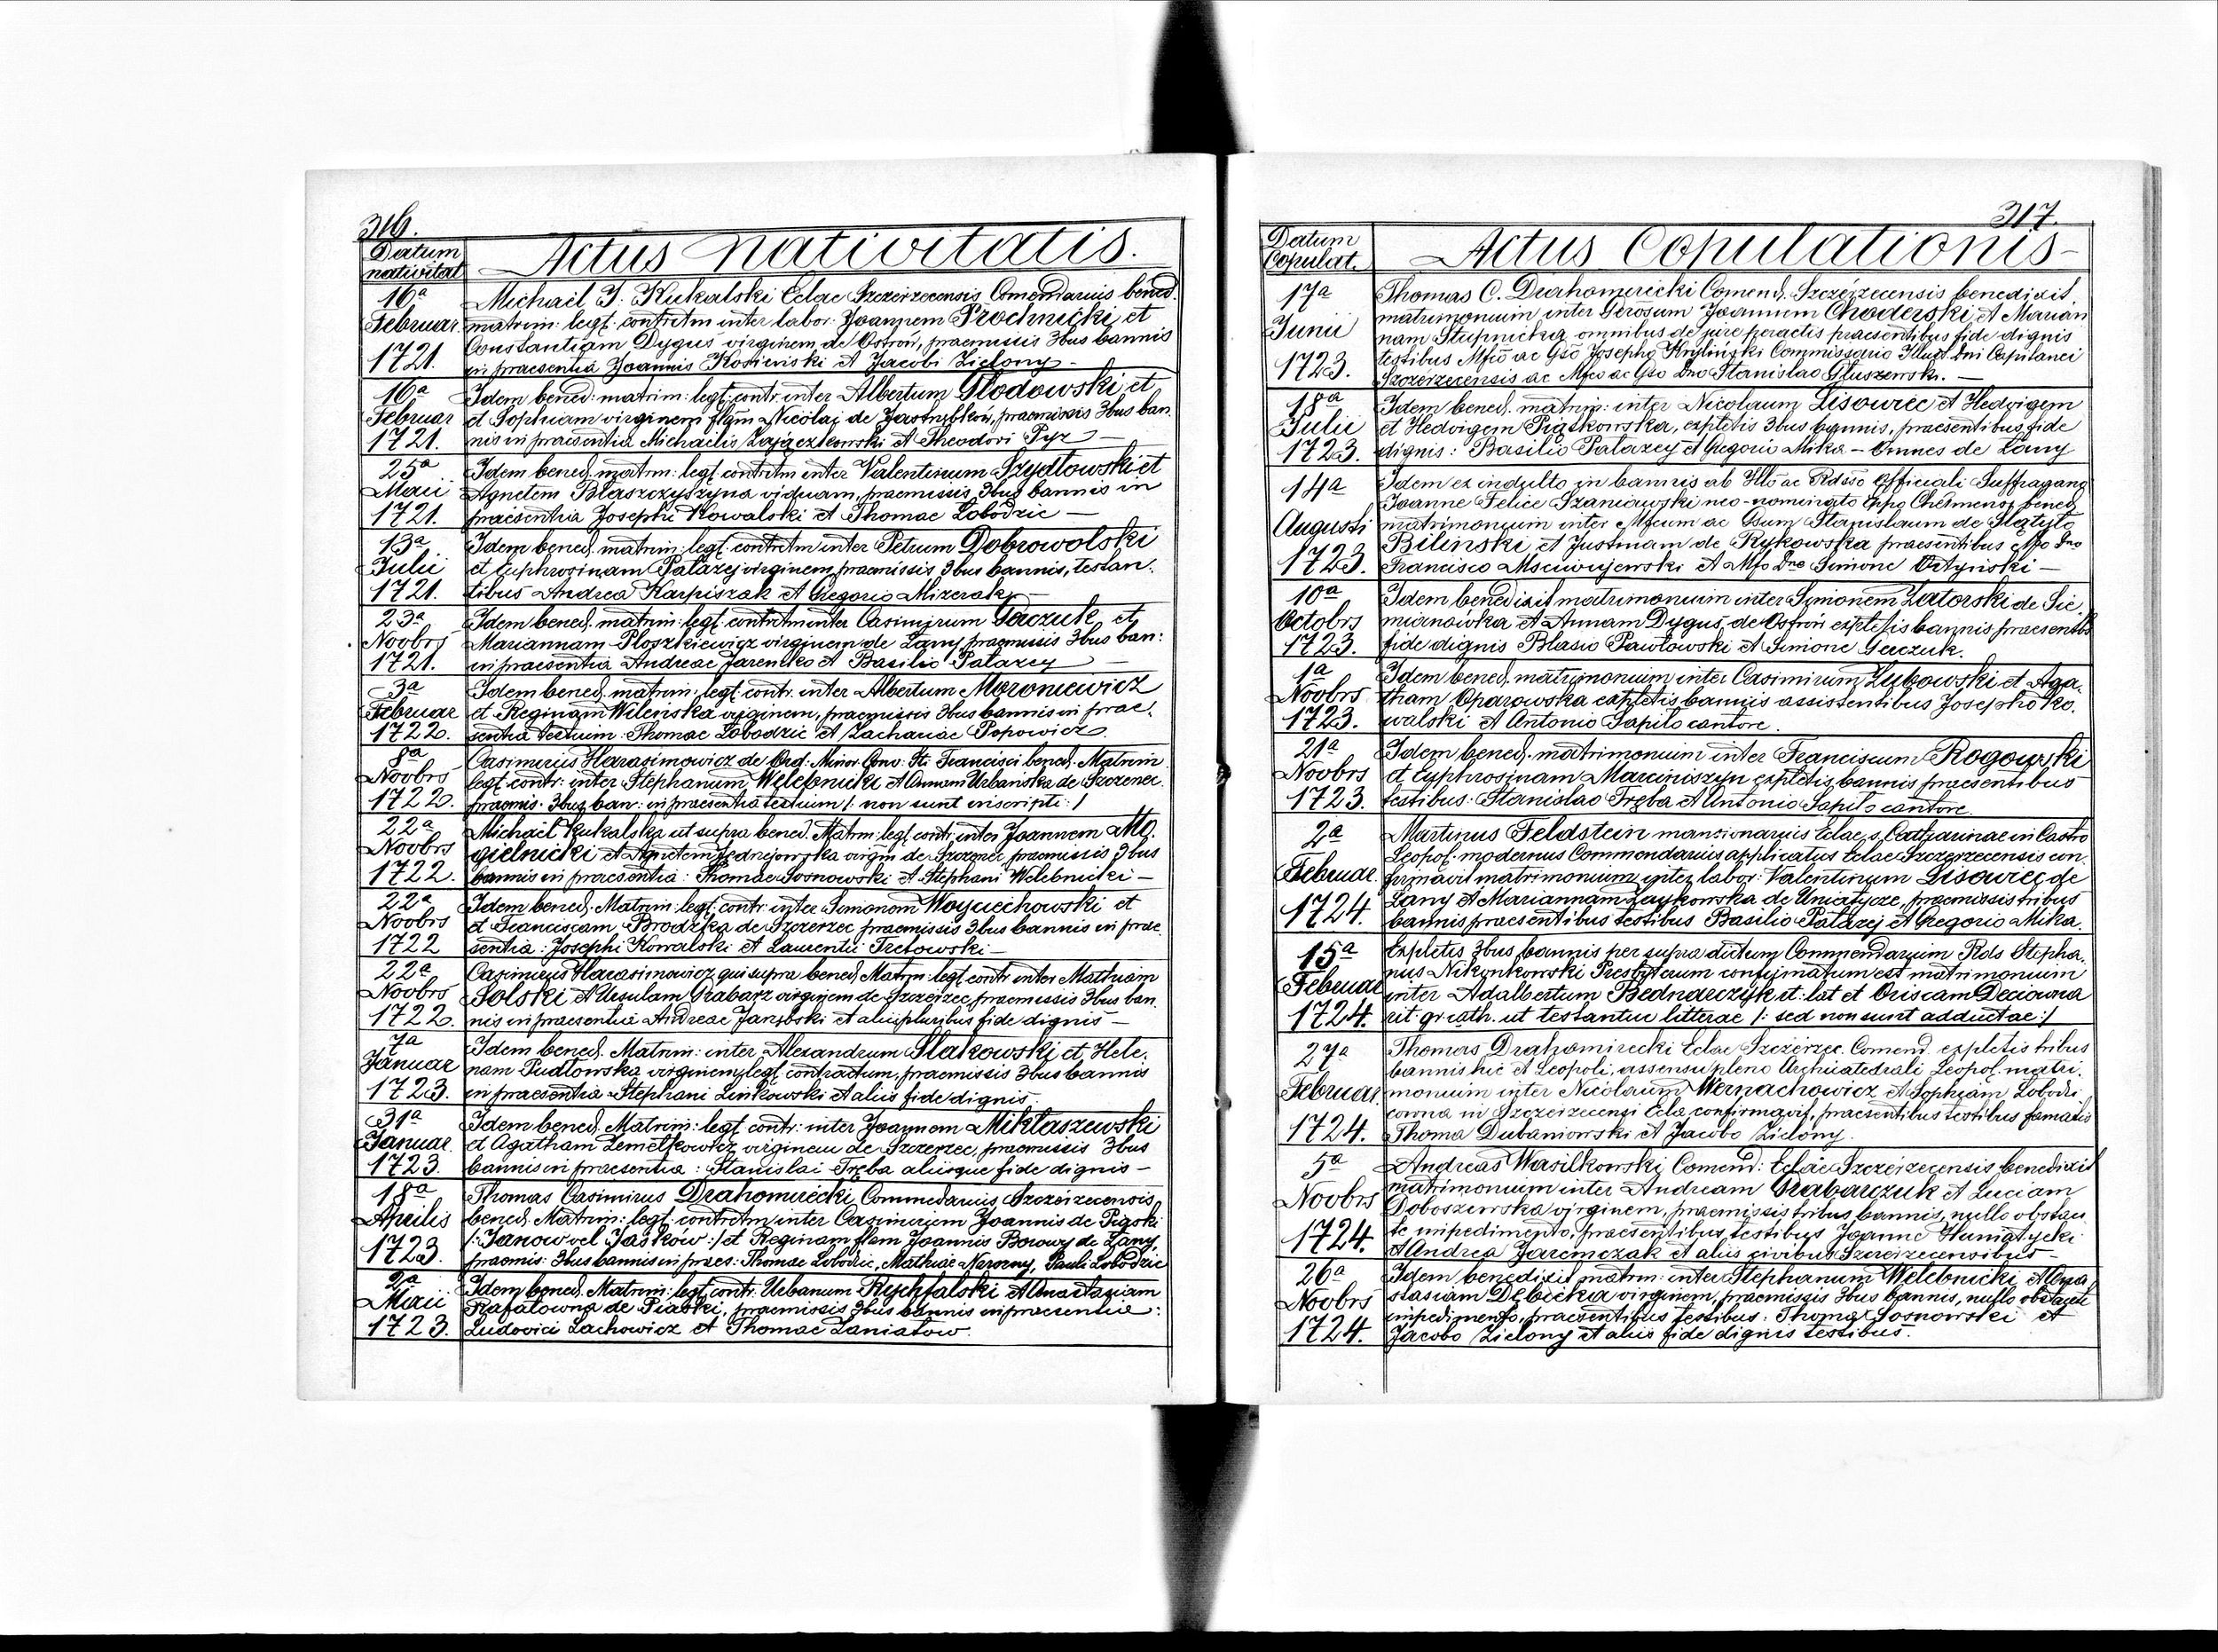 316.
Datum
nativitat
Actus nativitatis.
16a
Februar.
1721.
Michaël J. Kukalski Eclae Szczerzecensis Comendarius bened.
matrim: legt. contrctm inter labor: Joannem Prochnicki et
Constantiam Dygus virginem de Ostrów, praemissis 3bus bannis
in praesentia Joannis Kosiewski et Jacobi Zielony —
16a
Februar
1721.
Idem bened: matrim: legt: contr: inter Albertum Glodowski et
et Sophiam virginem Nicolai de praemissis 3bus ban.
nis in praesentia Michaelis et Theodori Pyz —
25a
Maii
1721.
Idem bened. matrm: legt. contrctm inter Valentinum Szydlowski et
Agnetem Blaszczyszyna viduam, praemissis 3bus bannis in
praesentia Josephi Kowalski et Thomae Lobodzic —
13a
Julii
1721.
Idem bened. matrim: legt. contrctm inter Petrum Dobrowolski
et Euphrosinam Palazej virginem, praemissis 3bus bannis, testan.
tibus Andrea Karpiszak et Gregorio Mizerak —
23a
Novbrs
1721.
Idem bened. matrim: legt. contrctm inter Casimirum Gerczuk et
Mariannam Ploszkiewicz virginem de Lany, praemissis 3bus ban:
in praesentia Andreae Jaremko et Basilio Palazey —
3a
Februar
1722.
Idem bened. matrim: legt. contr. inter Albertum Moroniewicz
et Reginam Wilenska virginem, praemissis 3bus bannis in prae.
sentia testium: Thomae Lobodzic et Zachariae Popowicz.
8a
Novbrs
1722.
Casimirus Harasimowicz de Ord: Minor. Conv: St. Francisci bened. Matrim
legt. contr: inter Stephanum Welebnicki et Annam Urbanska de Szczerzec
praemis. 3bus ban: in praesentia testium /: non sunt inscripti :/
22a
Novbrs
1722.
Michaël Kukalski ut supra bened. Matrm: legt. contr: inter Joannem Mo.
gielnicki et Agnetem Jedrzejowska virgin de Szczerzec praemissis 3bus
bannis in praesentia: Thomae Sosnowski et Stephani Welebnicki —
22a
Novbrs
1722
Idem bened. Matrim: legt. contr: inter Simonem Woyciechowski et
et Franciscam Brodzka de Szczerzec praemissis 3bus bannis in prae.
sentia: Josephi Kowalski et Laurentii Tretowski —
22a
Novbrs
1722.
Casimirus Harasimowicz qui supra bened. Matrm: legt. contr. inter Mathiam
Solski et Ursulam Grabarz virginem de Szczerzec, praemissis 3bus ban.
nis in praesentia Andreae et aliis pluribus fide dignis —
7a
Januar
1723.
Idem bened. Matrim: inter Alexandrum Slakowski et Hele.
nam Pudlowska virginem legt. contractum, praemissis 3bus bannis
in praesentia Stephani Linkowski et aliis fide dignis.
31a
Januar.
1723.
Idem bened. Matrim: legt. contr: inter Joannem Miklaszewski
et Agatham Zemelkowicz virginem de Szczerzec, praemissis 3bus
bannis in praesentia: Stanislai Treba aliisque fide dignis —
18a
Aprilis
1723.
Thomas Casimirus Drahomirecki Commedarius Szczerzecensis
bened. Matrim: legt. contrctm inter Casimirum Joannis de Piaski
/: Janow vel Jaskow :/ et Reginam flam Joannis Borowy de Lany,
praemis: 3bus bannis in praes: Thomae Lobodzic, Mathiae Nerozny, Pauli Lobodzic
2a
Maii
1723.
Idem bened. Matrim: legt. contr: Urbanum Rychfalski et Anastasiam
Rafalowna de Piaski, praemissis 3bus bannis in praesentia:
Ludovici Lachowicz et Thomae Zaniatow.
317.
Datum
Copulat.
Actus Copulationis —
17a
Junii
1723.
Thomas C. Drahomirecki Comend. Szczerzecensis benedixit
matrimonium inter Gerosum Joannem Choderski, et Marian
nam Stupnicka omnibus de jure peractis praesentibus fide dignis
testibus Mfco ac Gso Josepho Krylinski Commissario Illust. Dni Capitanei
Szczerzecensis ac Mfco ac Gso Dno Stanislao Gluszewsk. —
18a
Julii
1723.
Idem bened. matrim: inter Nicolaum Lisowiec et Hedvigem
et Hedvigem Piaskowska, expletis 3bus bannis, praesentibus fide
dignis: Basilio Palazey et Gregorio Mika — Omnes de Lany
14a
Augusti
1723.
Idem ex indulto in bannis ab Illo ac Rdsso Officiali Suffragano
Joanne Felice Szaniawski neo-nominato Eppo Chelmensz bened
matrimonium inter Mfcum ac Gsum Stanislaum de
Bilinski et Justinam de Rykowska praesentibus Mfo Dno
Francisco Msciwujewski et Mfo Dno Simone Ortynski —
10a
Octobrs
1723.
Idem benedixit matrimonium inter Simonem Zatorski de Sie.
mianówka et Annam Dygus, de Ostrow expletis bannis praesentbs
fide dignis Blasio Pawlowski et Simone Gerczuk.
1a
Novbrs
1723.
Idem bened. matrimonium inter Casimirum Lubowski et Aga.
tham Oparowska expletis bannis assistentibus Josepho Ko.
walski et Antonio Sapilo cantore.
21a
Novbrs
1723.
Idem bened. matrimonium inter Franciscum Rogowski
et Euphrosinam Marciniszyn expletis bannis praesentibus
testibus: Stanislao Treba et Antonio Sapilo cantore.
2a
Februar.
1724.
Martinus Feldstein mansionarius Eclae s. Catharinae in Castro
Leopol. modernus Commendarius applicatus Eclae Szczerzecensis con.
firmavit matrimonium inter labor: Valentinum Lisowiec de
Lany et Mariannam Zaykowska de Uniatycze, praemissis tribus
bannis praesentibus testibus Basilio Palazej et Gregorio Mika.
15a
Februar
1724.
Expletis 3bus bannis per supra dictum Commendarium Rds Stepha.
nus Nikonkowski Presbyterum confirmatum est matrimonium
inter Adalbertum Bednarczyk rt: lat et Oriscam Deciowna
rit gr cath. ut testantur litterae /: sed non sunt adductae :/
27a
Februar
1724.
Thomas Drahomirecki Eclae Szczerzec. Comend. expletis tribus
bannis hic et Leopoli, assensu pleno Archicatedrali Leopol. matri.
monium inter Nicolaum Wernachowicz et Sophiam Lobodzi
cowna in Szczerzecensi Ecla confirmavit, praesentibus testibus famatis
Thoma Dubaniowski et Jacobo Zielony.
5a
Novbrs
1724.
Andreas Wasilkowski Comend: Eclae Szczerzecensis benedixit
matrimonium inter Andream Grabarczuk et Luciam
Doboszewska virginem, praemissis tribus bannis, nullo obstan
te impedimento, praesentibus testibus Joanne Huniatycki
et Andrea Jaremczak et aliis civibus Szczerzecensibus —
26a
Novbrs
1724.
Idem benedixit matrm: inter Stephanum Welebnicki et Ana
stasiam Debicka virginem, praemissis 3bus bannis, nullo obstante
impedimento, praesentibus testibus: Thoma Sosnowski et
Jacobo Zielony et aliis fide dignis testibus.